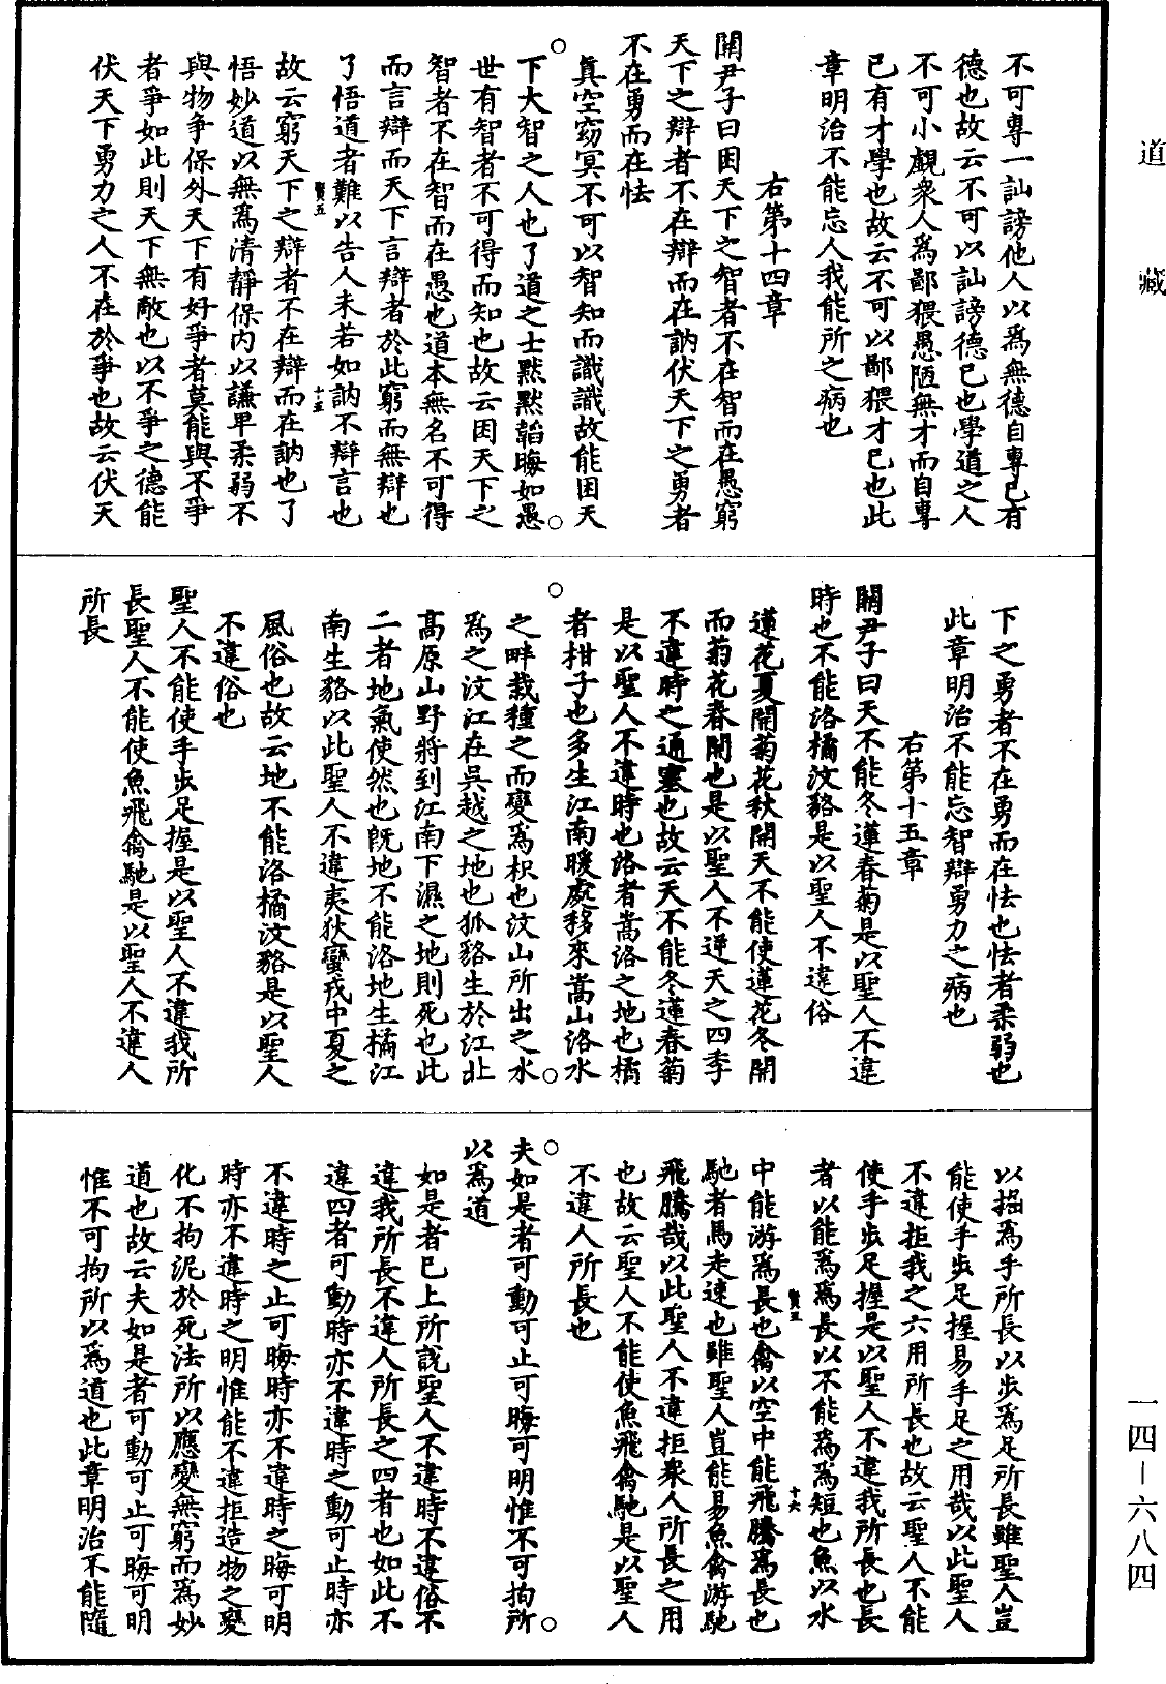 道藏
不可專一訕謗他人以爲無德自專已有
德也故云不可以訕謗德已也學道之人
不可小覷衆人爲鄙猥愚陋無才而自專
已有才學也故云不可以鄙猥才已也此
章明治不能忘人我能所之病也
右第十四章
關尹子曰困天下之智者不在智而在愚窮
天下之辯者不在辯而在訥伏天下之勇者
不在勇而在怯
真空窈冥不可以智知而識識故能困天
下大智之人也了道之士默默韜晦如愚
世有智者不可得而知也故云困天下之
智者不在智而在愚也道本無名不可得
而言辯而天下言辯者於此窮而無辯也
了悟道者難以告人未若如訥不辯言也
賢五
十五
故云窮天下之辯者不在辯而在訥也了
悟妙道以無爲清靜保內以謙卑柔弱不
與物爭保外天下有好爭者莫能與不爭
者爭如此則天下無敵也以不爭之德能
伏天下勇力之人不在於爭也故云伏天
下之勇者不在勇而在怯也怯者柔弱也
此章明治不能忘智辯勇力之病也
右第十五章
關尹子曰天不能冬蓮春菊是以聖人不違
時也不能洛橘汶貉是以聖人不違俗
蓮花夏開菊花秋開天不能使蓮花冬開
而菊花春開也是以聖人不逆天之四季
不違時之通塞也故云天不能冬蓮春菊
是以聖人不違時也洛者嵩洛之地也橘
者柑子也多生江南暖處移來嵩山洛水
之畔栽種之而變爲枳也汶山所出之水
爲之汶江在吳越之地也狐貉生於江北
高原山野將到江南下濕之地則死也此
二者地氣使然也旣地不能洛地生橘江
南生貉以此聖人不違夷狄蠻戎中夏之
風俗也故云地不能洛橘汶貉是以聖人
不違俗也
聖人不能使手步足握是以聖人不違我所
長聖人不能使魚飛禽馳是以聖人不違人
所長
以握爲手所長以步爲足所長雖聖人豈
能使手步足握易手足之用哉以此聖人
不違拒我之六用所長也故云聖人不能
使手步足握是以聖人不違我所長也長
者以能爲爲長以不能爲爲短也魚以水
賢五
十六
中能游爲長也禽以空中能飛騰爲長也
馳者馬走速也雖聖人豈能易魚禽游馳
飛騰哉以此聖人不違拒衆人所長之用
也故云聖人不能使魚飛禽馳是以聖人
不違人所長也
夫如是者可動可止可晦可明惟不可拘所
以爲道
如是者已上所說聖人不違時不違俗不
違我所長不違人所長之四者也如此不
違四者可動時亦不違時之動可止時亦
不違時之止可晦時亦不違時之晦可明
時亦不違時之明惟能不違拒造物之變
化不拘泥於死法所以應變無窮而爲妙
道也故云夫如是者可動可止可晦可明
惟不可拘所以爲道也此章明治不能隨
一四－六八四